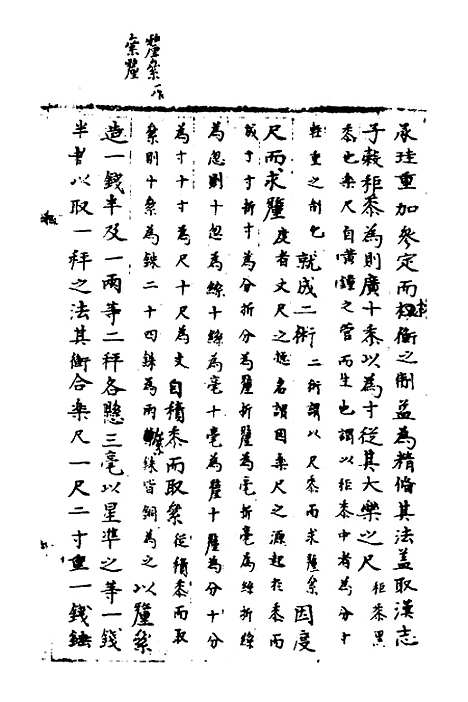 釐絫一作
絫釐
承珪重加參定而權衡之制益為精備其法蓋取漢志
子穀秬黍為則廣十黍以為寸從其大樂之尺秬黍黑
黍也樂尺自黃鐘之管而生也謂以秬黍中者為分寸
輕重之制也就成二術二術謂以尺黍而求釐絫因度
尺而求釐度者丈尺之總名謂因樂尺之源起於黍而
成於寸折寸為分折分為釐折釐為毫折毫為絲折絲
為忽則十忽為絲十絲為毫十毫為釐十釐為分十分
為寸十寸為尺十尺為丈自積黍而取絫從積黍而取
絫則十絫為銖二十四銖為兩絫銖皆銅為之以釐絫
造一錢半及一兩等二秤各懸三毫以星準之等一錢
半者以取一秤之法其衡合樂尺一尺二寸重一錢錘